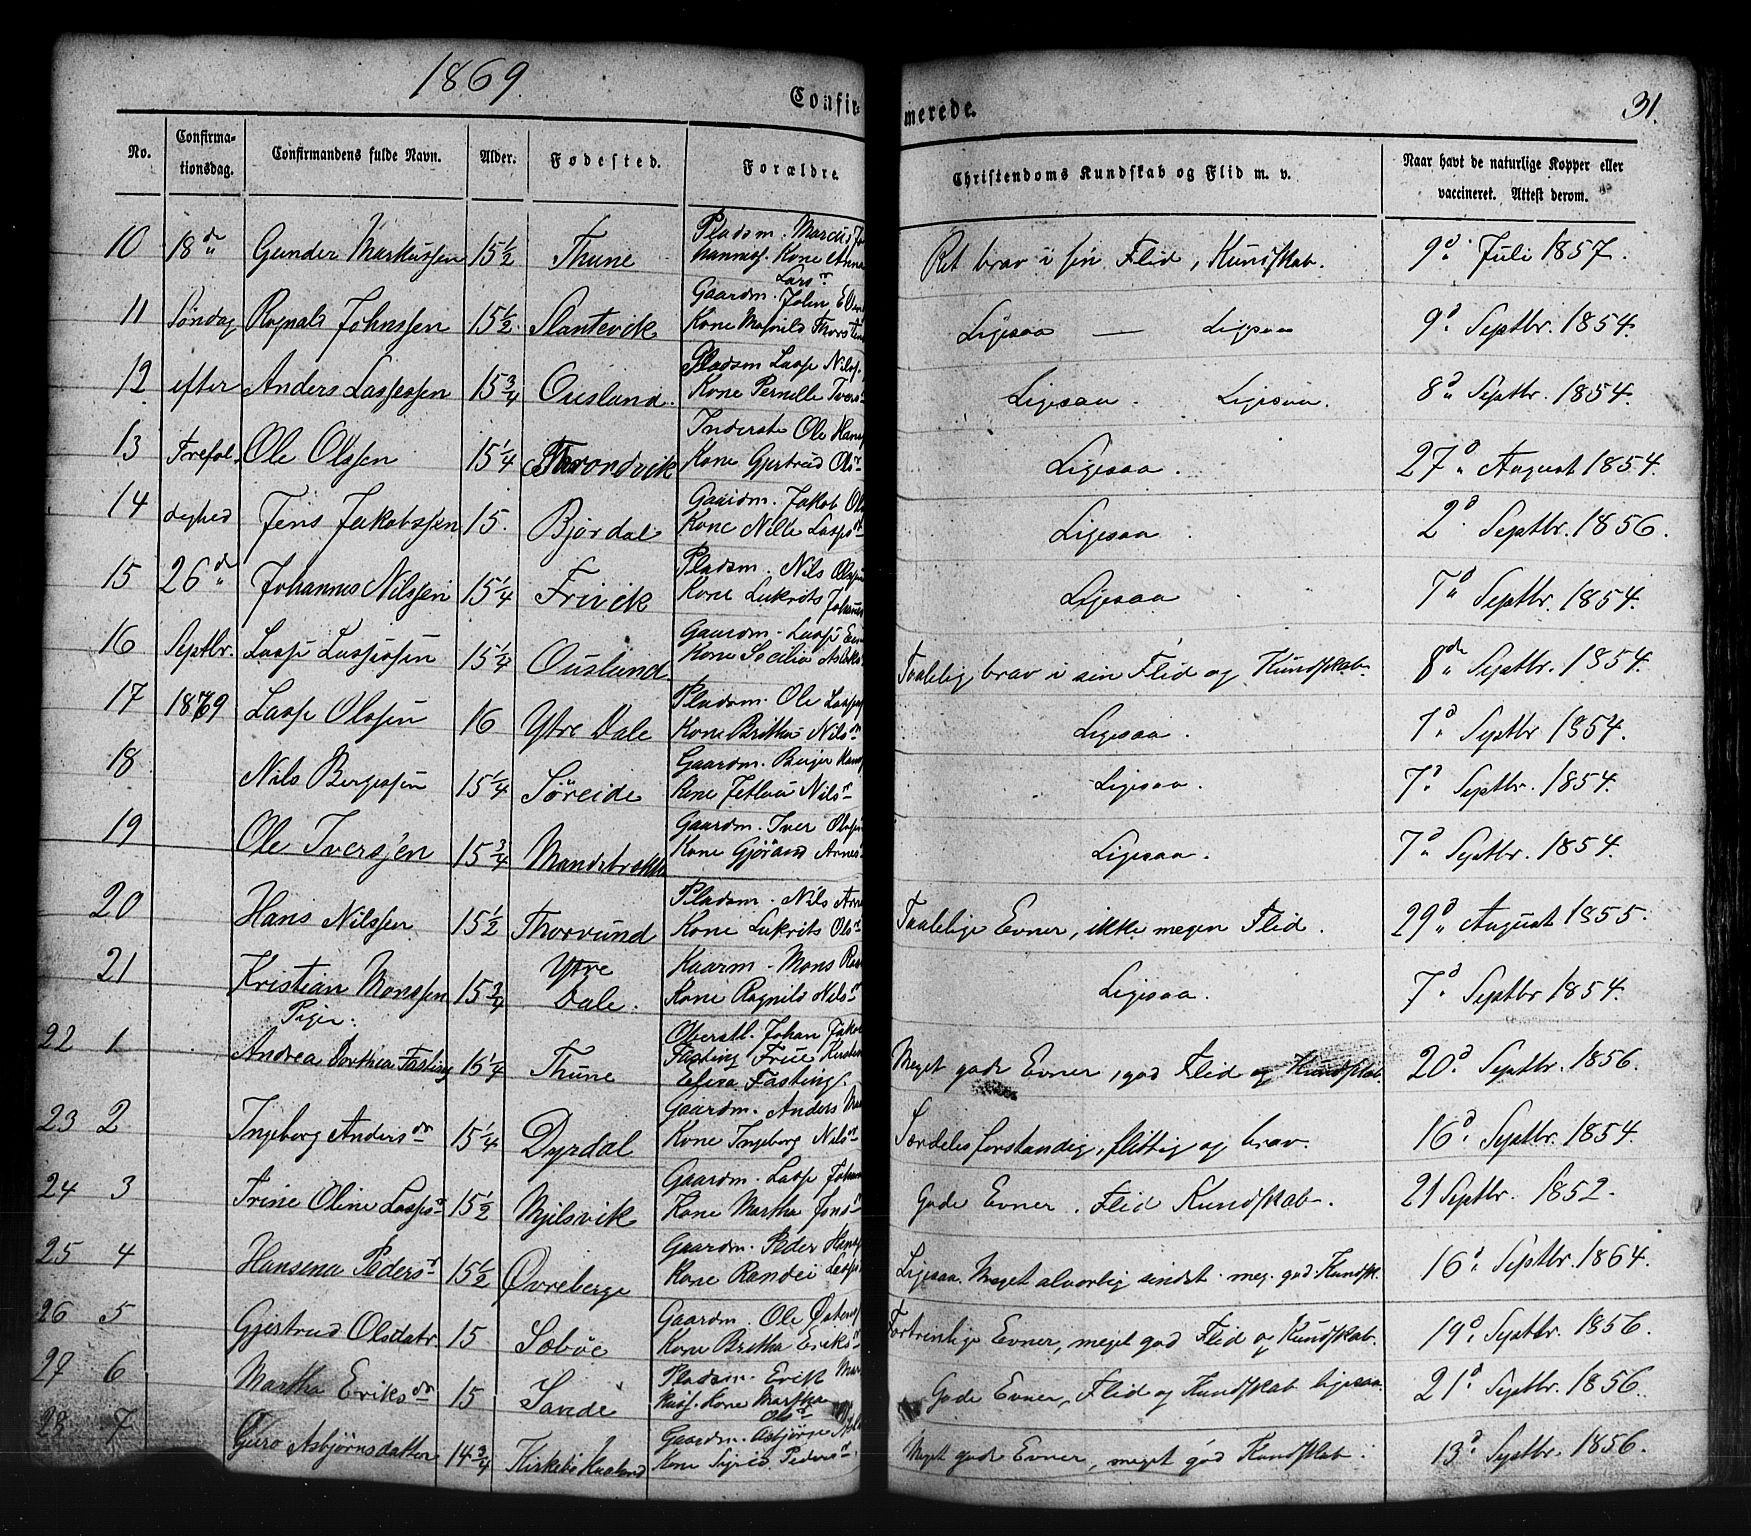 1869.
Confir-
merede.
31.
No.
Confirma-
tionsdag.
Confirmandens fulde Navn.
Alder.
Fødested.
Forældre.
Christendoms Kundskab og Flid m. v.
Naar havt de naturlige Kopper eller
vaccineret. Attest derom.
10 18de Gunder Markussen 15 1/2 Thune Pladsm. Marcus Jo
hannes. Kone Anna
Larsdr
Ret brav i sin Flid, Kundskab. 9d. Juli 1857.
11 Søndag Ragnald Johnssen 15 1/2 Slantevik Gaardm. John
Kone Thorst
Ligesaa — Ligesaa 9d Septbr. 1854.
12 efter Anders Lassessen 15 3/4 Ousland. Pladsm Lasse Nils
Kone Pernille Ivers
Ligesaa. Ligesaa. 8d Septbr. 1854.
13 Trefol. Ole Olssen 15 1/4 Throndvik Inderste Ole Hans
Kone Gjertrud Olsdr
Ligesaa. 27d August 1854.
14 dighed Jens Jakobssen 15. Bjørdal Gaardm. Jakob Ols
Kone Nille Lassedr
Ligesaa. 2d. Septbr. 1856.
15 26de Johannes Nilssen 15 1/4 Frivik Pladsm. Nils Olssen
Kone Lukrits Johannes
Ligesaa 7d Septbr. 1854.
16 Septbr. Lasse Lassessen 15 1/4 Ousland Gaardm. Lasse
Kone Secilia Aslaks
Taalelig brav i sin Flid og Kundskab. 8de Septbr. 1854.
17 1869 Lasse Olssen 16 Ytre Dale Pladsm. Ole Lasses
Kone Britha Nilsdr
Ligesaa. 7d Septbr. 1854.
18 Nils Bergessen 15 1/4 Søreide Gaardm. Berge Hans
Kone Nilsdr
Ligesaa. 7d Septbr. 1854.
19 Ole Iverssen 15 3/4 Mandsbrekke Gaardm. Iver Olssen
Kone Gjørand Arnes
Ligesaa. 7d Septbr. 1854.
20 Hans Nilssen 15 1/2 Thorvund Pladsm. Nils Arne
Kone Lukrits Olsdr
Taalelige Evner, ikke megen Flid. 29d August 1855.
21 Kristian Monssen 15 3/4 Ytre
Dale. Mons
Kone Ragnild Nilsdr
Ligesaa. 7d Septbr 1854.
Piger.
22 1 Andrea Dorthea Fasting 15 1/4 Thune Oberstl. Johan Jako
Fasting Frue
Fasting
Meget gode Evner, god Flid og Kundskab. 20d Septbr. 1856.
23 2 Ingeborg Andersdr 15 1/4 Dyrdal Gaardm. Anders
Kone Ingeborg Nilsdr
Særdeles forstandig, flittig og brav. 16d. Septbr. 1854.
24 3 Trine Oline Lassedr 15 1/2 Mjelsvik Gaardm. Lasse Johann
Kone Martha Jonsdr
Gode Evner, Flid Kundskab. 21 Septbr. 1852.
25 4 Hansena Pedersdr 15 1/2 Øvreberge Gaardm. Peder Hans
Kone Randei Lasse
Ligesaa. Meget alvorlig sindet. meg. god Kundsk. 16d. Septbr. 1864.
26 5 Gjertrud Olsdatr. 15 Sæbøe Gaardm. Ole
Kone Britha Eriksdr
Fortrinlige Evner, meget god Flid og Kundskab. 19d Septbr. 1856.
27 6 Martha Eriksdr 15 Sande Pladsm. Erik Mar
kuss. Kone Martha
Olsdr
Gode Evner, Flid og Kundskab ligesaa. 21d Septbr. 1856.
28 7 Guro Asbjørnsdatter 14 3/4 Kirkebø Gaardm. Asbjørn
Kone Sigrid Pedersdr
Meget gode Evner, meget god Kundskab. 13d Septbr. 1856.